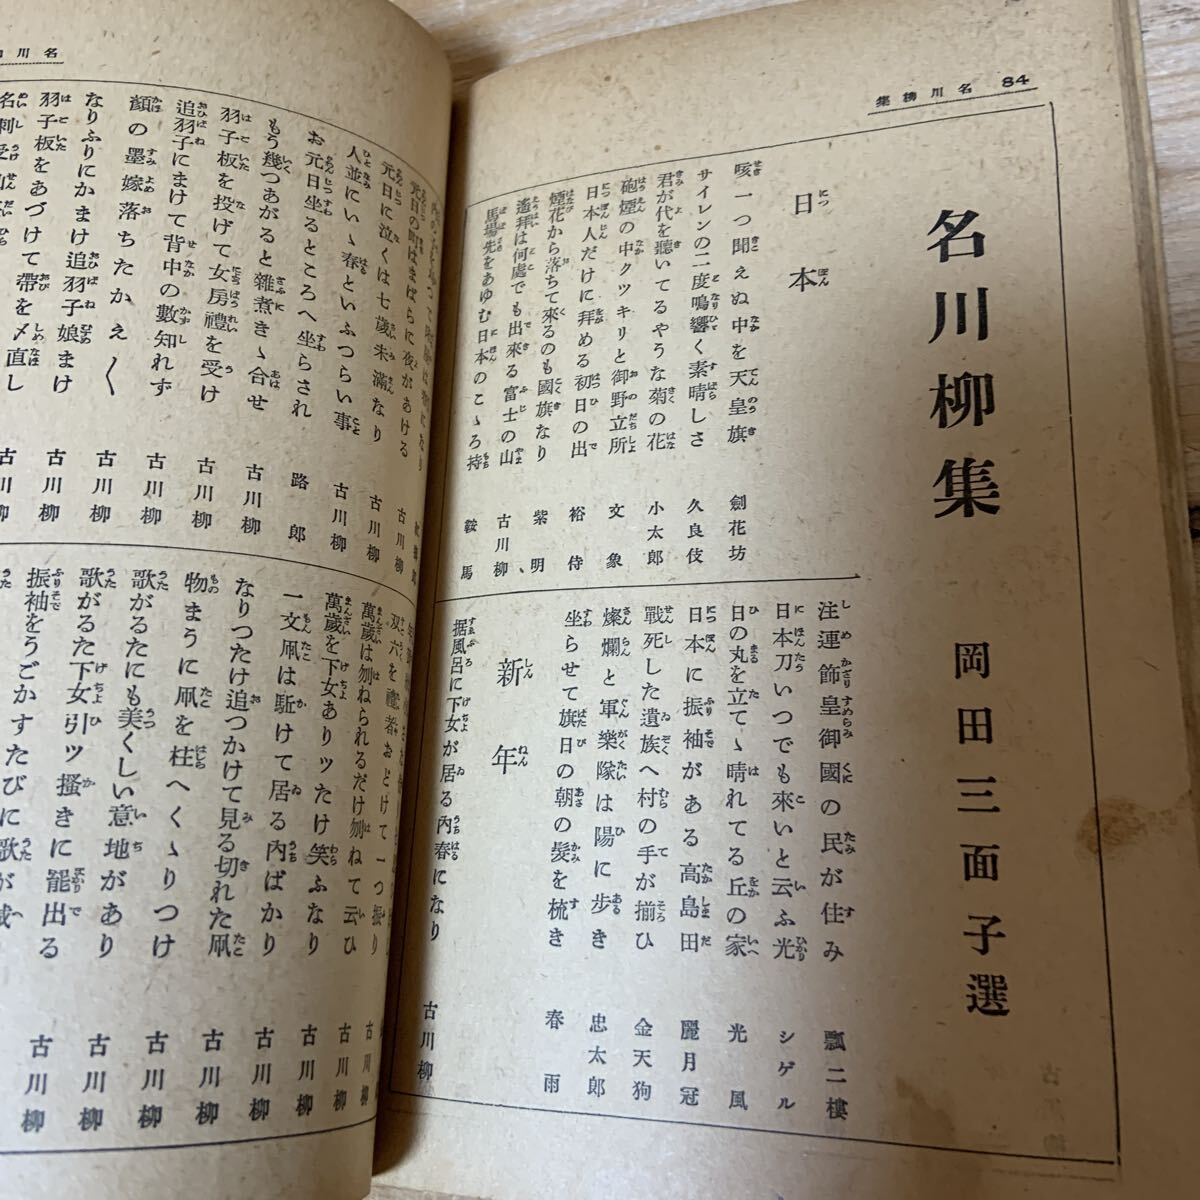 84 名川柳集
名川柳集　岡田三面子選
日本
咳一つ聞えぬ中を天皇旗　劍花坊
サイレンの二度鳴響く素晴しさ　久良伎
君が代を聽いてるやうな菊の花　小太郎
砲煙の中クツキリと御野立所　文象
日本人だけに拜める初日の出　裕侍
煙花から落ちて來るのも國旗なり　紫明
遙拜は何處でも出來る富士の山　古川柳
馬場先をあゆむ日本のこゝろ持　鞍馬
注連飾皇御國の民が住み　瓢二樓
日本刀いつでも來いと云ふ光　シゲル
日の丸を立てゝ晴れてる丘の家　光風
日本に振袖がある高島田　麗月冠
戰死した遺族へ村の手が揃ひ　金天狗
燦爛と軍樂隊は陽に歩き　忠太郎
坐らせて旗日の朝の髮を梳き　春雨
新年
据風呂に下女が居る内春になり　古川柳
名川
元日の町はまばらに夜があける　古川柳
元日に泣くは七歳未滿なり　古川柳
人並にいゝ春といふつらい事　古川柳
お元日坐るところへ坐らされ　路郎
もう幾つあがると雜煮きゝ合せ　古川柳
羽子板を投げて女房禮を受け　古川柳
追羽子にまけて背中の數知れず　古川柳
顏の墨嫁落ちたかえ〱　古川柳
なりふりにかまけ追羽子娘まけ　古川柳
羽子板をあづけて帶を〆直し　古川柳
双六を禮者おどけて一つ振り
萬歳は刎ねられるだけ刎ねて云ひ　古川柳
萬歳を下女ありッたけ笑ふなり　古川柳
一文凧は駈けて居る内ばかり　古川柳
なりつたけ追つかけて見る切れた凧　古川柳
物まうに凧を柱へくゝりつけ　古川柳
歌がるたにも美くしい意地があり　古川柳
歌がるた下女引ッ搔きに罷出る　古川柳
振袖をうごかすたびに歌が減　古川柳